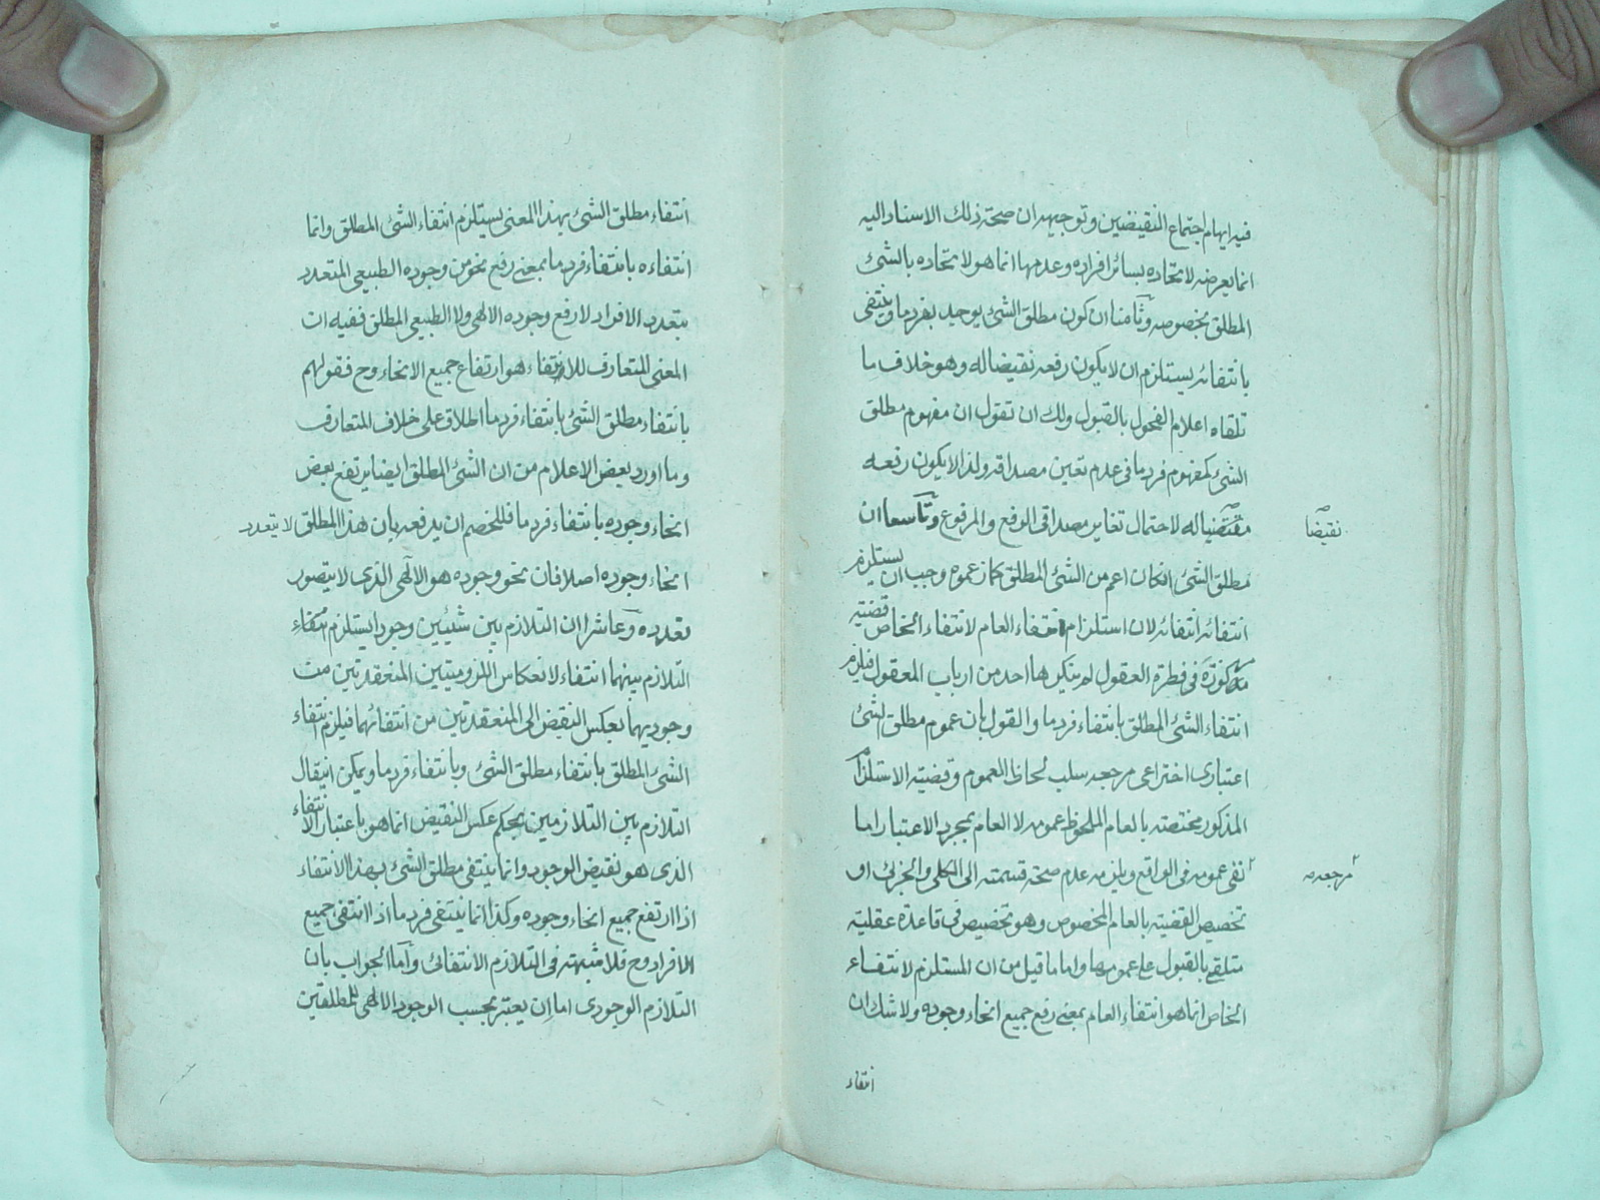 فيه ايهام اجتماع النقيضين وتوجيهه ان صحة ذلك الاسناد اليه
انما يعرضه لاتحاده بسائر افراده وعدمها انما هو لاتحاده بالشئ
المطلق بخصوصه وثامنا ان كون مطلق الشئ يوجد بفرد ما وينتفى
بانتفائه يستلزم ان لا يكون رفعه نقيضا له وهو خلاف ما
تلقاه اعلام الفحول بالقبول ولك ان تقول ان مفهوم مطلق
الشئ كمفهوم فرد ما فى عدم تعين مصداقه ولذا لا يكون رفعه
له لاحتمال تغاير مصداقى الرفع والمرفوع وتاسعا ان
نقيضا
مطلق الشئ ان كان اعم من الشئ المطلق كما زعموه وجب ان يستلزم
انتفائه انتفائه لان استلزام انتفاء العام لانتفاء الخاص قضية
مركوزة فى فطرة العقول لم ينكرها احد من ارباب المعقول فيلزم
انتفاء الشئ المطلق بانتفاء فرد ما والقول بان عموم مطلق الشئ
اعتبارى اختراعى مرجعه سلب لحاظ العموم وقضية الاستلزام
المذكور مختصة بالعام الملحوظ عمومه لا العام بمجرد الاعتبار اما
نفى عمومه فى الواقع ويلزمه عدم صحة قسمته الى الكلى والجزئى او
مرجعه
تخصيص القضية بالعام المخصوص وهو تخصيص فى قاعدة عقلية
متلقى بالقبول على عمومها واما ما قيل من ان المستلزم لانتفاء
الخاص انما هو انتفاء العام بمعنى رفع جميع انحاء وجوده ولا شك ان
انتفاء
انتفاء مطلق الشئ بهذا المعنى يستلزم انتفاء الشئ المطلق وانما
انتفاءه بانتفاء فرد ما بمعنى رفع نحو من وجوده الطبيعى المتعدد
بتعدد الافراد لا رفع وجوده الالهى ولا الطبيعى المطلق ففيه ان
المعنى المتعارف للانتفاء هو ارتفاع جميع الانحاء وح فقولهم
بانتفاء مطلق الشئ بانتفاء فرد ما اطلاق على خلاف المتعارف
وما اورد بعض الاعلام من ان الشئ المطلق ايضا يرتفع بعض
انحاء وجوده بانتفاء فرد ما فللخصم ان يدفعه بان هذا المطلق لا يتعدد
انحاء وجوده اصلا فان نحو وجوده هو الالهى الذى لا يتصور
تعدده وعاشرا ان التلازم بين شيئين وجودا يستلزم
التلازم بينهما انتفاء لانعكاس اللزوميتين المنعقدتين من
وجوديهما بعكس النقيض الى المنعقدتين من انتفائهما فيلزم انتفاء
الشئ المطلق بانتفاء مطلق الشئ وبانتفاء فرد ما ويمكن ان يقال
التلازم بين التلازمين بحكم عكس النقيض انما هو باعتبار الانتفاء
الذى هو نقيض الوجود وانما ينتفى مطلق الشئ بهذا الانتفاء
اذا ارتفع جميع انحاء وجوده وكذا انما ينتفى فرد ما اذا انتفى جميع
الافراد وح فلا شبهة فى التلازم الانتفائى واما الجواب بان
التلازم الوجودى اما ان يعتبر بحسب الوجود الالهى للمطلقين